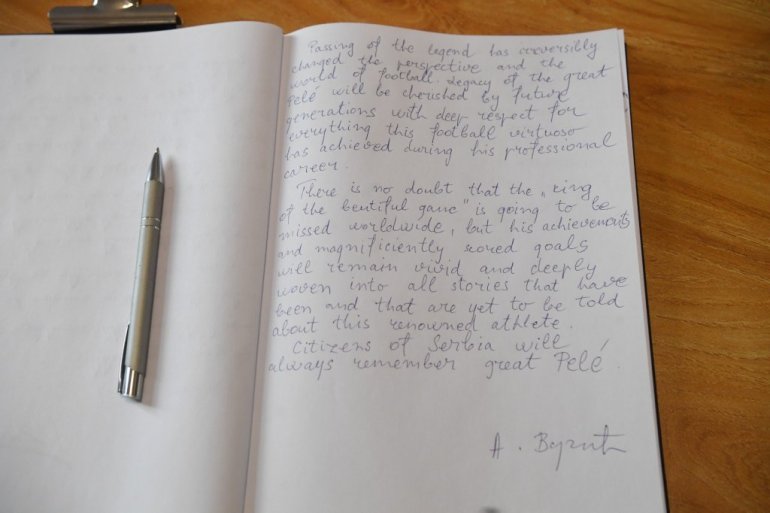 Passing of the legend has irreversibly
changed the perspective and the
world of football. Legacy of the great
Pelé will be cherished by future
generations with deep respect for
everything this football virtuoso
has achieved during his professional
career.
There is no doubt that the „king
of the beutiful game" is going to be
missed worldwide, but his achievements
and magnificiently scored goals
will remain vivid and deeply
woven into all stories that have
been and that are yet to be told
about this renowned athlete.
Citizens of Serbia will
always remember great Pelé.
A.